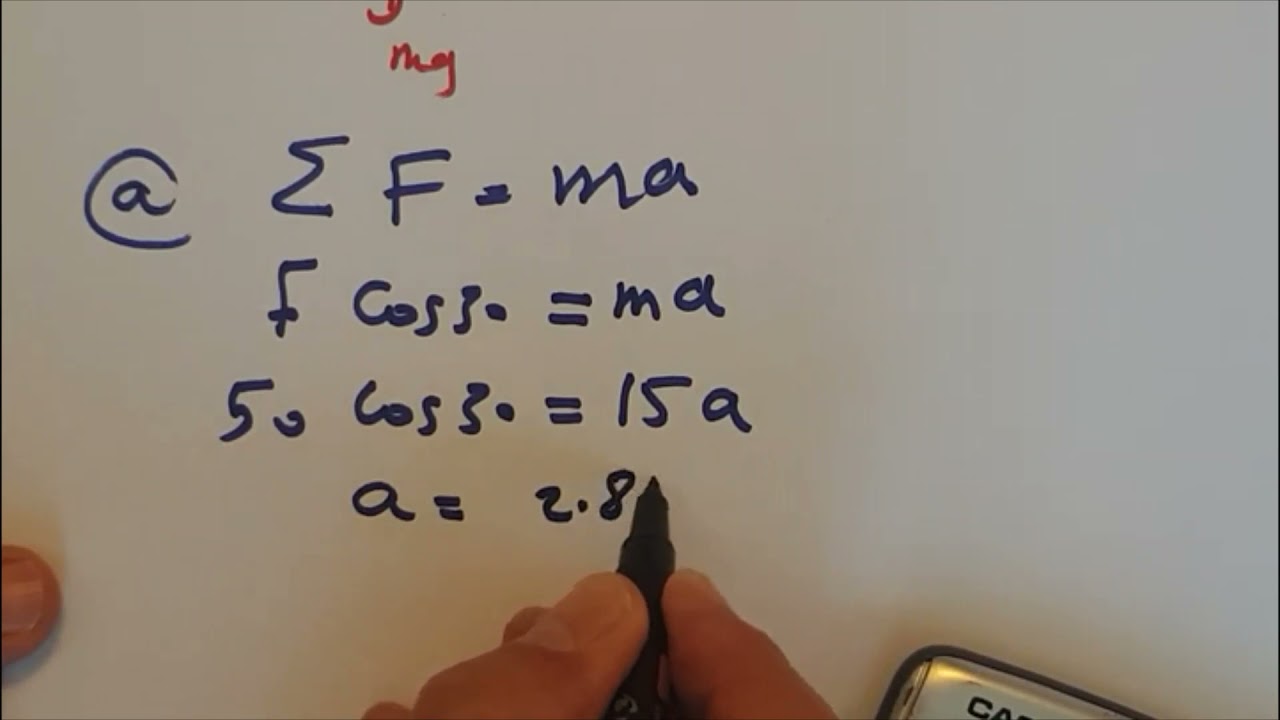 mg
ⓐ Σ F = ma
F cos30 = ma
50 cos30 = 15a
a = 2.8
CA